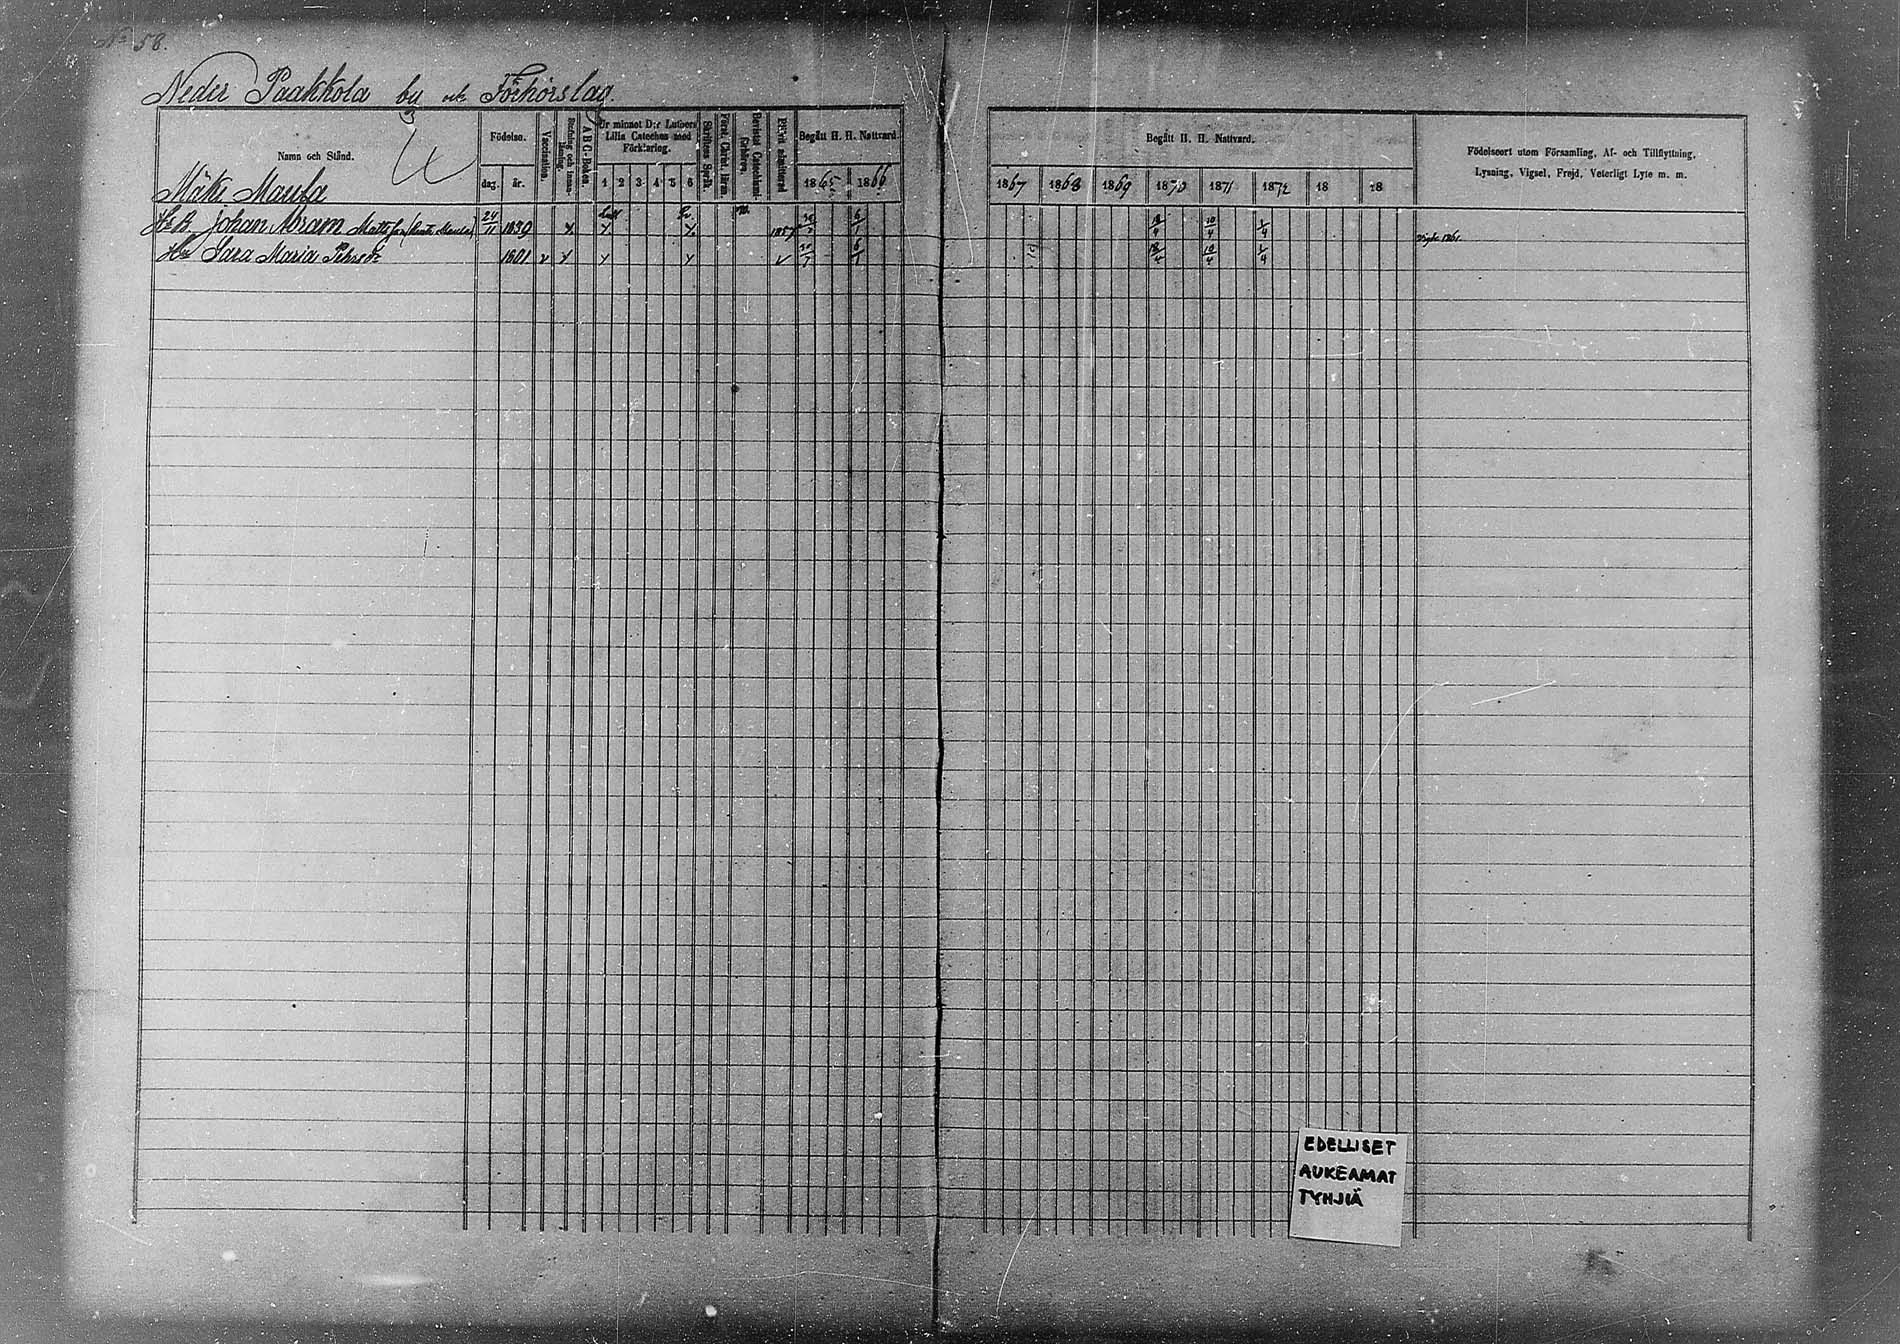 No 58.
Neder Paakkola by och Förhörslag.
Namn och Stånd.
Födelse.
dag.
år.
Vaccination.
A B C-Boken.
Ur minnet D:r Luthers
Lilla Cateches med
Förklaring.
1 2 3 4 5 6
Skriftens Språk.
Först. Christ. läran.
Begått H. H. Nattvard.
1865 1866
Begått H. H. Nattvard.
1867 1868 1869 1870 1871 1872 18 18
Födelseort utom Församling, Af- och Tillflyttning,
Lysning, Vigsel, Frejd, Veterligt Lyte m. m.
Mäki Maula
Johan Abram Mattsson 24/11 1839 1857 6/1 18/4 10/4 1/4 Vigde 1861.
Hu Sara Maria 6/1 18/4 10/4 1/4
EDELLISET
AUKEAMAT
TYHJIÄ